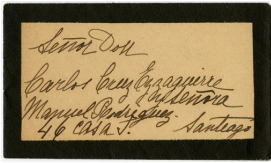 Señor Don
Carlos Cruz Eyzaguirre
y señora
Manuel Rodriguez
46 casa
Santiago